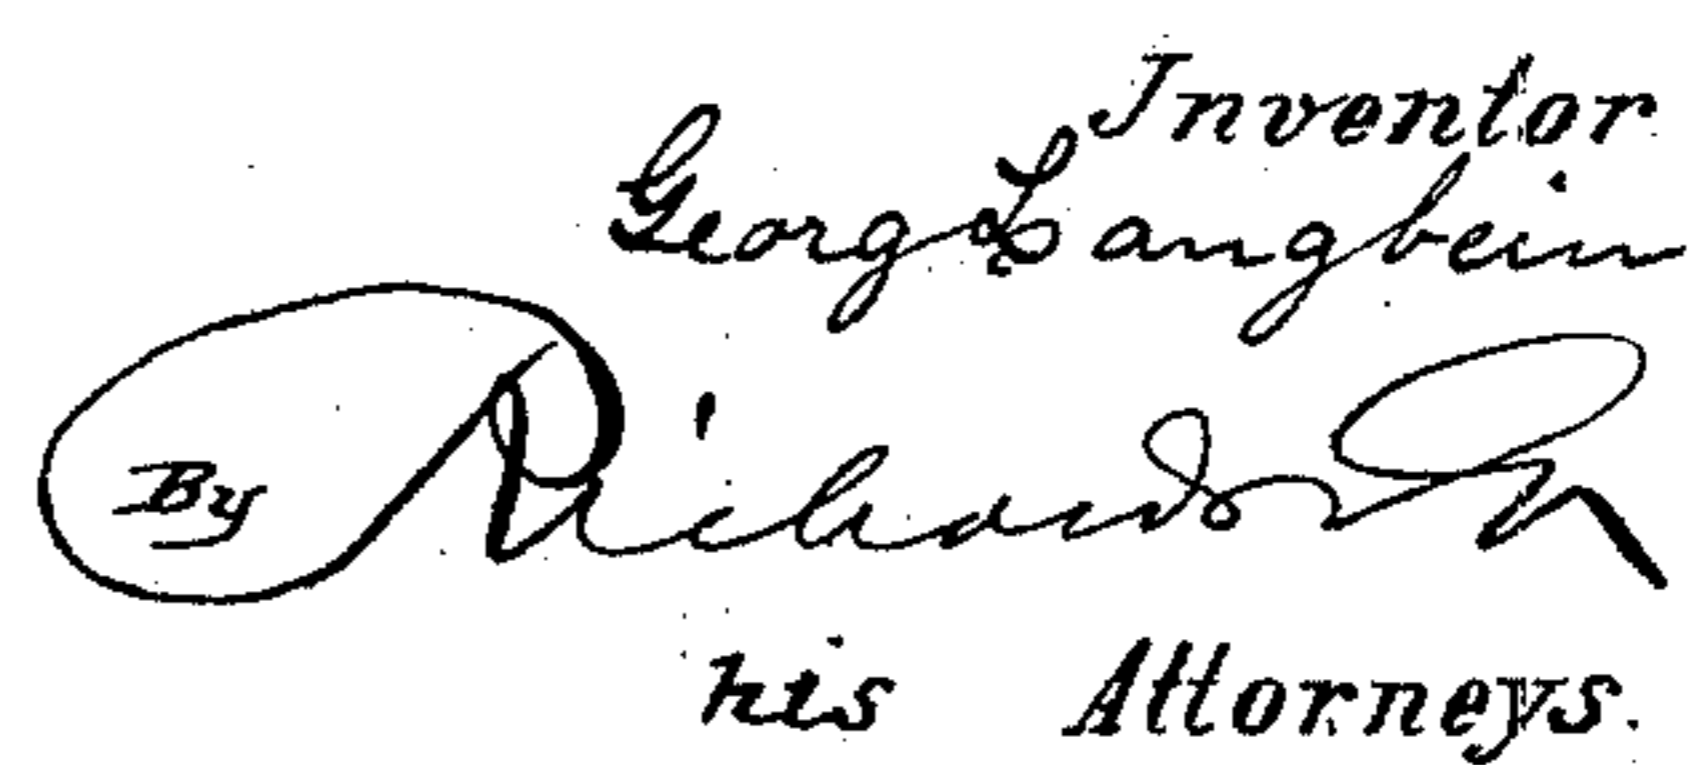 Inventor
Georg Langbein
By Richards & Co
his Attorneys.